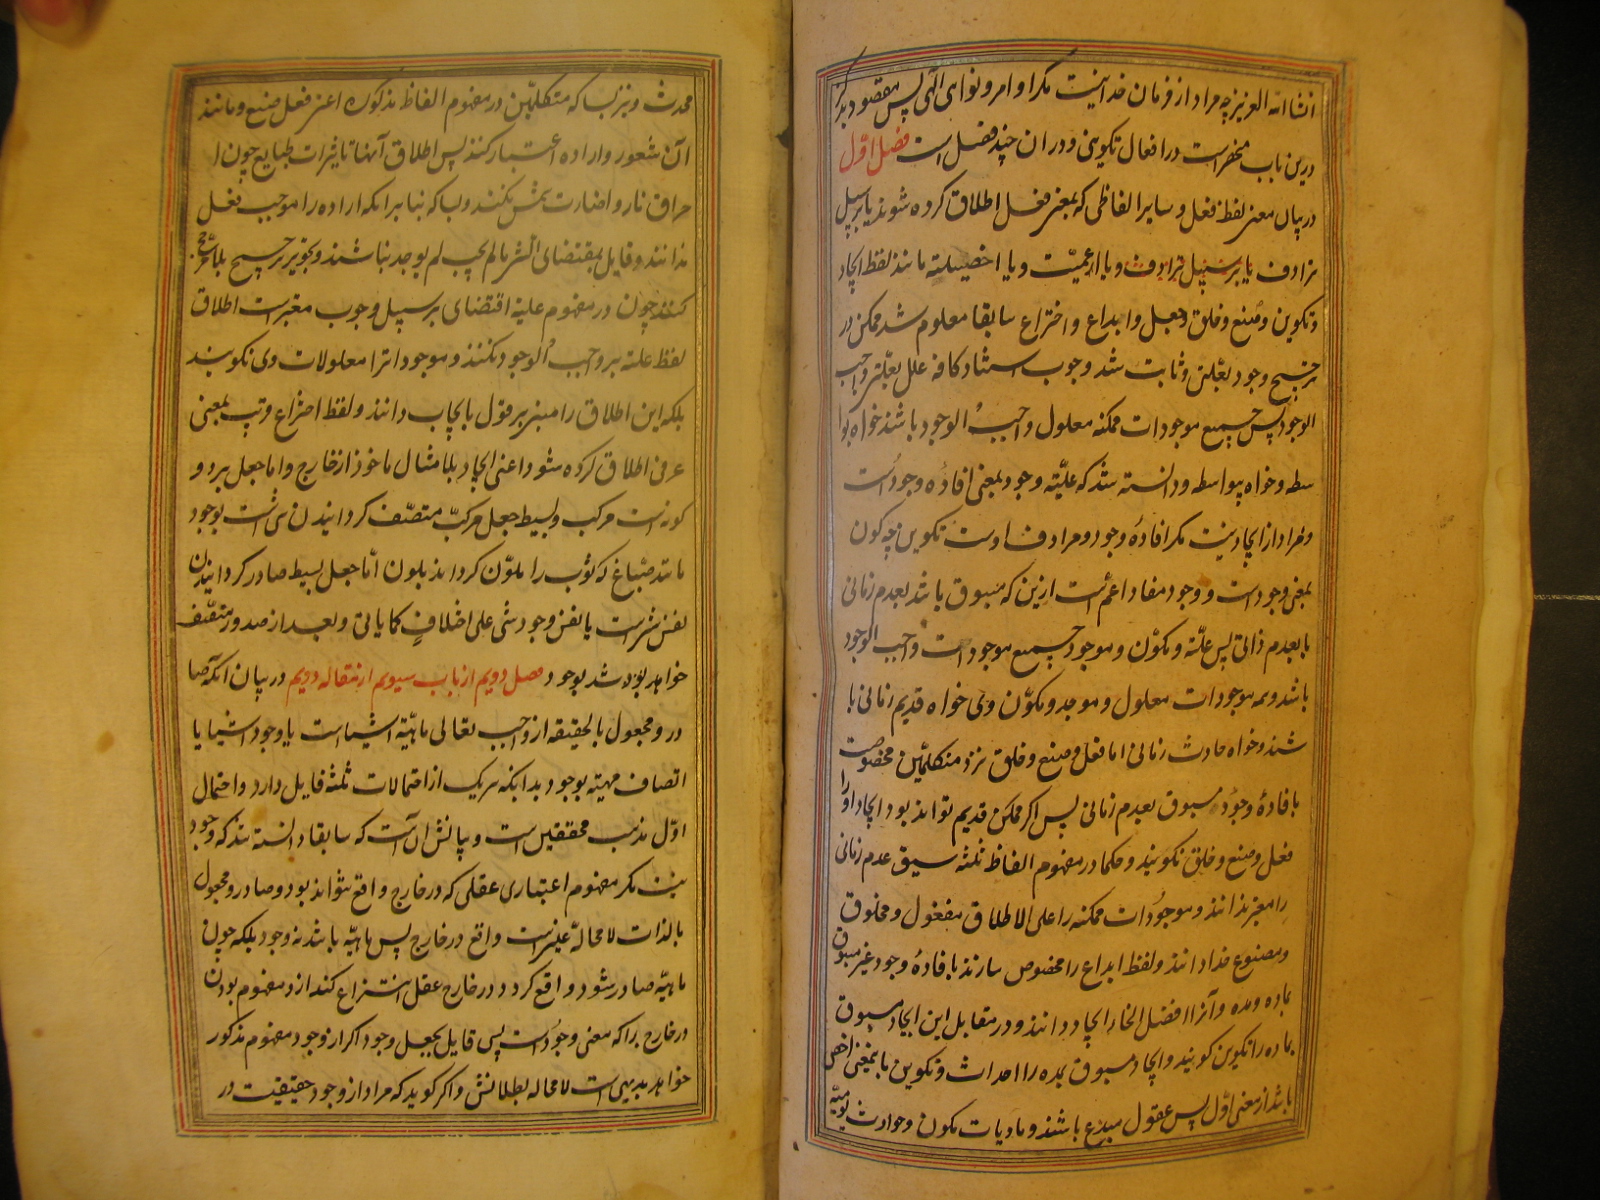 انشاالله العزیز چه مراد از فرمان خدا نیست مکر اوامر و نواهی الهی پس مقصود بذکر
درین باب منحصر است در افعال تکوینی و در ان چند فصل است فصل اوّل
در بیان معنی لفظ فعل و سایر الفاظی که بمعنی فعل اطلاق کرده شوند یا بر سبیل
ترادف یا بر سبیل ترادف و یا اعمیّت و یا اخصیّت مانند لفظ ایجاد
و تکوین و صنع و خلق و جعل و ابداع و اختراع سابقا معلوم شد ممکن در
ترجیح وجود بعلّتی و ثابت شد وجوب استناد کافه علل بعلّتی واجب
الوجود پس جمیع موجودات ممکنه معلول واجب الوجود باشند خواه بوا
سطه و خواه بیواسطه و دانسته شد که علیّته وجود بمعنی افاده وجود است
و مراد از ایجاد نیست مکر افادهٔ وجود و مرادف اوست تکوین چه کون
بمعنی وجود است و وجود مفاد اعم است ازین که مسبوق باشد بعدم زمانی
یا بعدم ذاتی پس علّة و مکوّن و موجد جمیع موجودات واجب الوجود
باشد و همه موجودات معلول و موجد و مکوّن وی خواه قدیم زمانی با
شند و خواه حادث زمانی اما فعل و صنع و خلق نزد متکلمّین مخصوصت
بافادهٔ وجود مسبوق بعدم زمانی پس اکر ممکن قدیم تواند بود ایجاد او را
فعل و صنع و خلق نکویند و حکما در مفهوم الفاظ ثلثه سبق عدم زمانی
را معتبر ندانند و موجودات ممکنه را علی الاطلاق مفعول و مخلوق
و مصنوع خدا دانند و لفظ ابداع را مخصوص سازند بافادهٔ وجود غیر مسبوق
بماده و مده و آنرا افضل انحاء ایجاد دانند و در مقابل این ایجاد مسبوق
بماده را تکوین کویند و ایجاد مسبوق بمده را احداث و تکوین باینمعنی اخص
باشد از معنی اوّل پس عقول مبدع باشند و مادیات مکون و حوادث یومیّه
محدث و نیز باید که متکلمّین در مفهوم الفاظ مذکوره اعنی فعل صنع و مانند
آن شعور و اراده اعتبار کنند پس اطلاق آنها تاثیرات طبایع چون ا
حراق نار و اضائت شمس نکنند و باید که بنابر انکه اراده را موجب فعل
ندانند و قایل بمقتضای الشی مالم یجب لم یوجد نباشند و تجویز ترجیح بلامرّجح
کنند چون در مفهوم علیة اقتضای بر سبیل وجوب معتبرست اطلاق
لفظ علة بر واجب الوجود نکنند و موجودات را معلولات وی نکویند
بلکه این اطلاق را مبنی بر قول بایجاب دانند و لفظ اختراع و تب بمعنی
عرفی اطلاق کرده شود اعنی ایجاد بلا مثال ماخوذ از خارج و اما جعل بر دو
کونه است مرکب و بسیط جعل مرکبّ متصّف کردانیدن شی است بوجود
مانند صبّاغ که ثوب را ملوّن کرداند بلون امّا جعل بسیط صادر کردانیدن
نفس شی است یا نفس وجود شی علی اختلاف کما یاتی و بعد از صدور متصّف
خواهد بود شد بوجود فصل دویم از باب سیوم از مقاله دویم در بیان انکه صا
در و مجعول بالحقیقه از واجب تعالی ماهیّة اشیاست یا وجود اشیا یا
اتصاف مهیّته بوجود بدانکه هر یک از احتمالات ثلثه قایل دارد و احتمال
اوّل مذهب محققین است و بیانش ان است که سابقا دانسته شد که وجود
نیست مکر مفهوم اعتباری عقلی که در خارج واقع نتواند بود و صادر و مجعول
بالذات لا محالهّ عینی است واقع در خارج پس ماهیّه باشد نه وجود بلکه چون
ماهیّه صادر شود و واقع کردد در خارج عقل انتزاع کند ازو مفهوم بودن
در خارج را که معنی وجود است پس قایل بجعل وجود اکر از وجود مفهوم مذکور
خواهد بدیهی است لا محاله بطلانش و اکر کوید که مراد از وجود حقیقیت در